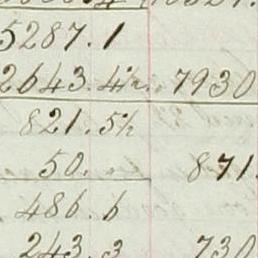 5287.1
2643.4½ 7930
821.5½
50. 871.
486.6
243.3 730